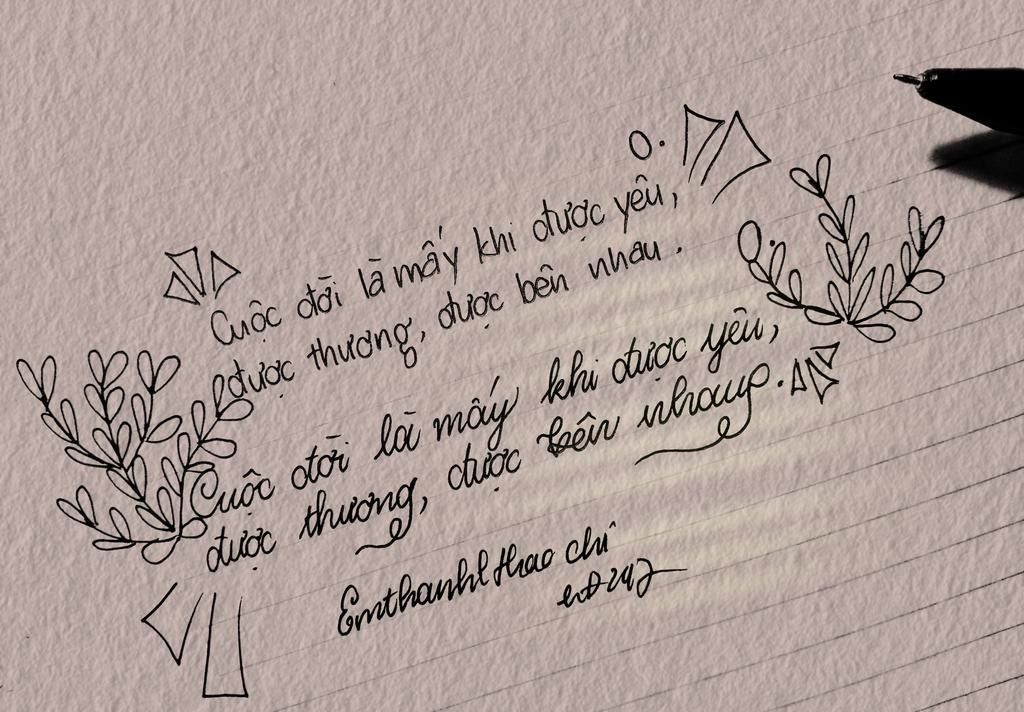 Cuộc đời là mấy khi được yêu,
được thương, được bên nhau.
Cuộc đời là mấy khi được yêu,
được thương, được bên nhau.
thao chi